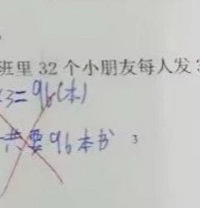 班里 32 个小朋友每人发 3
×3=96(本)
共要96本书 3